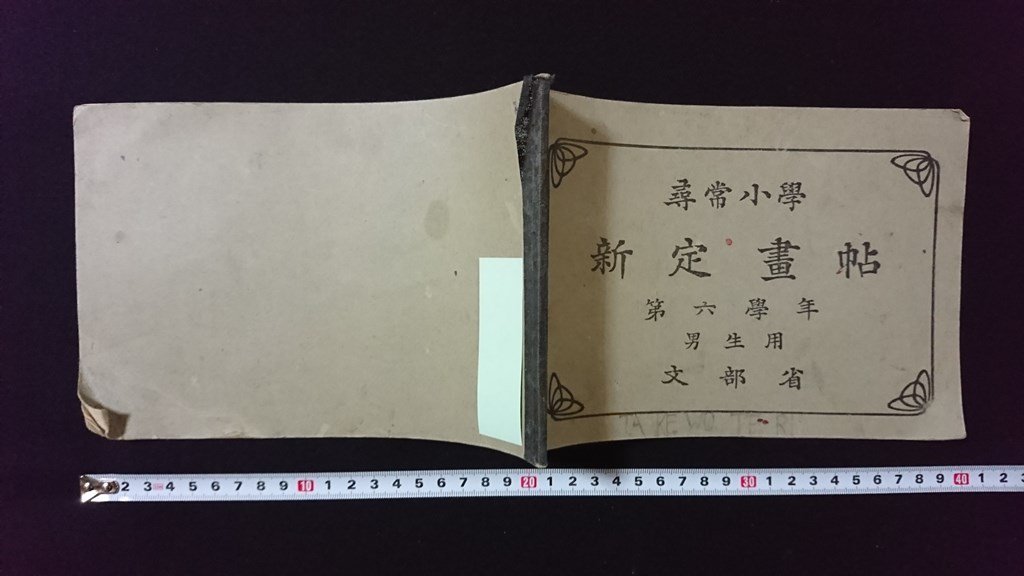 尋常小學
新定畫帖
第六學年
男生用
文部省
TAKEWO
2 3 4 5 6 7 8 9 10 1 2 3 4 5 6 7 8 9 20 1 2 3 4 5 6 7 8 9 30 1 2 3 4 5 6 7 8 9 40 1 2 3